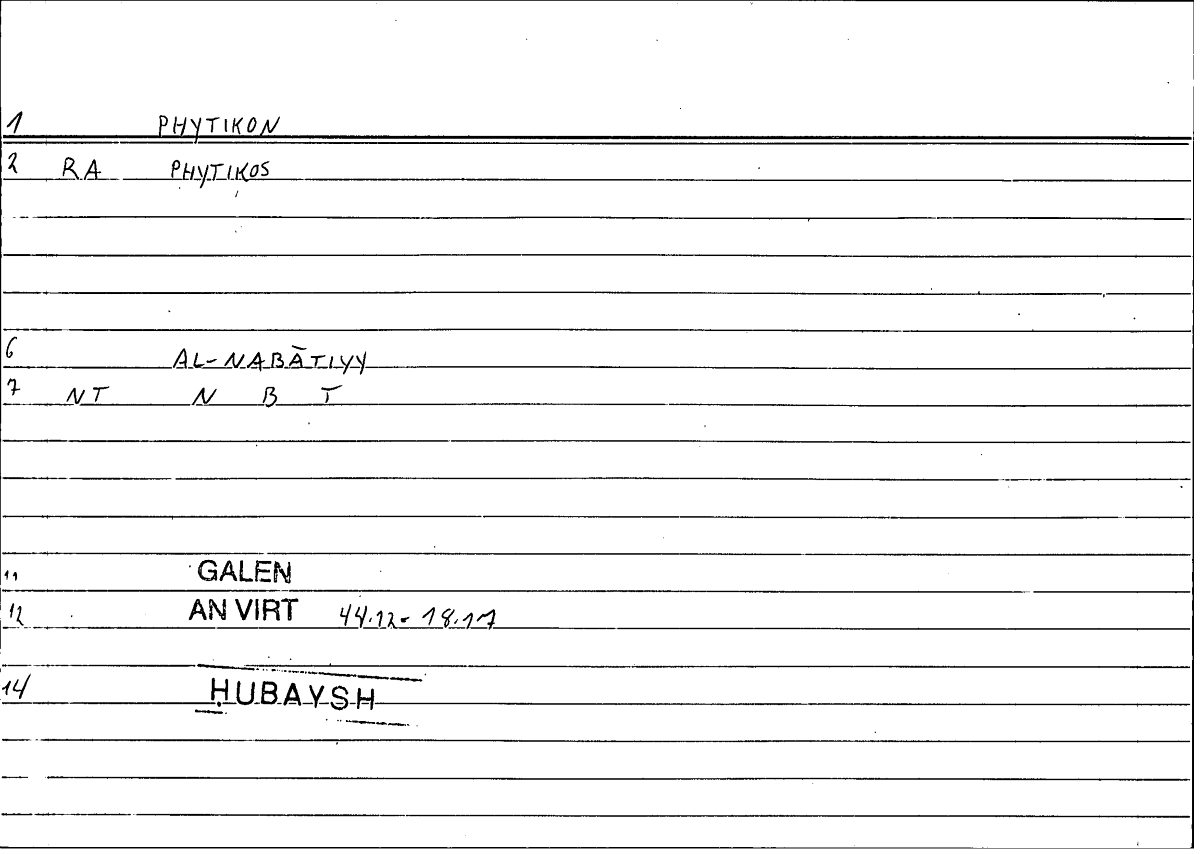 1 PHYTIKON
2 RA PHYTIKOS
6 AL-NABĀTIYY
7 NT N B T
11 GALEN
12 AN VIRT 44.12 - 18.17
14 ḤUBAYSH